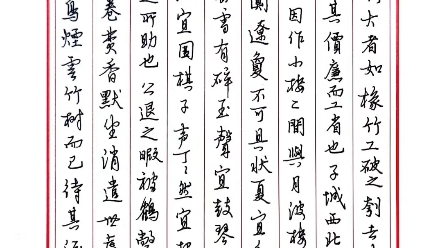 大者如椽竹工破之刳去
其價廉而工省也子城西北
因作小楼二間與月波楼
闃遼夐不可具狀夏宜
雪有碎玉聲宜鼓琴
宜围棋子声丁丁然宜投
之所助也公退之暇被鶴氅
卷焚香默坐消遣世慮
鳥煙雲竹树而已待其